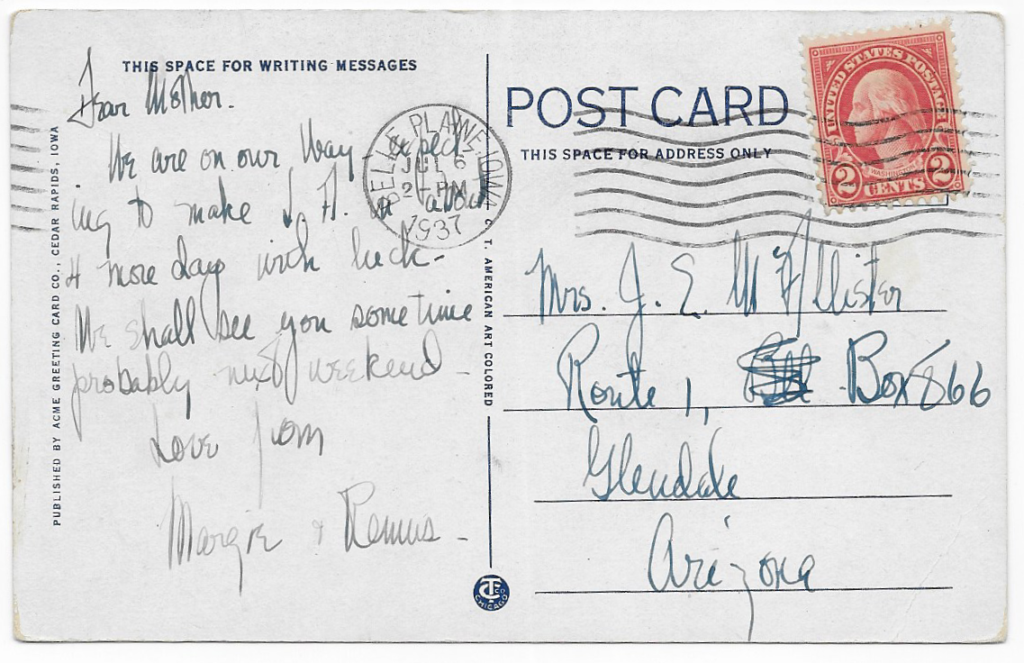 THIS SPACE FOR WRITING MESSAGES
Dear Mother.
We are on our Way expect
ing to make L. A. in about
4 more days with luck-
We shall see you sometime
probably next weekend -
Love from
Margie + Remus -
PUBLISHED BY ACME GREETING CARD CO., CEDAR RAPIDS, IOWA
BELLE PLAINE, IOWA
JUL 6
2-PM
1937
C. T. AMERICAN ART COLORED
CHICAGO
POST CARD
THIS SPACE FOR ADDRESS ONLY
UNITED STATES POSTAGE
WASHINGTON
2 CENTS 2
Mrs. J. E. McAllister
Route 1, Box 866
Glendale
Arizona